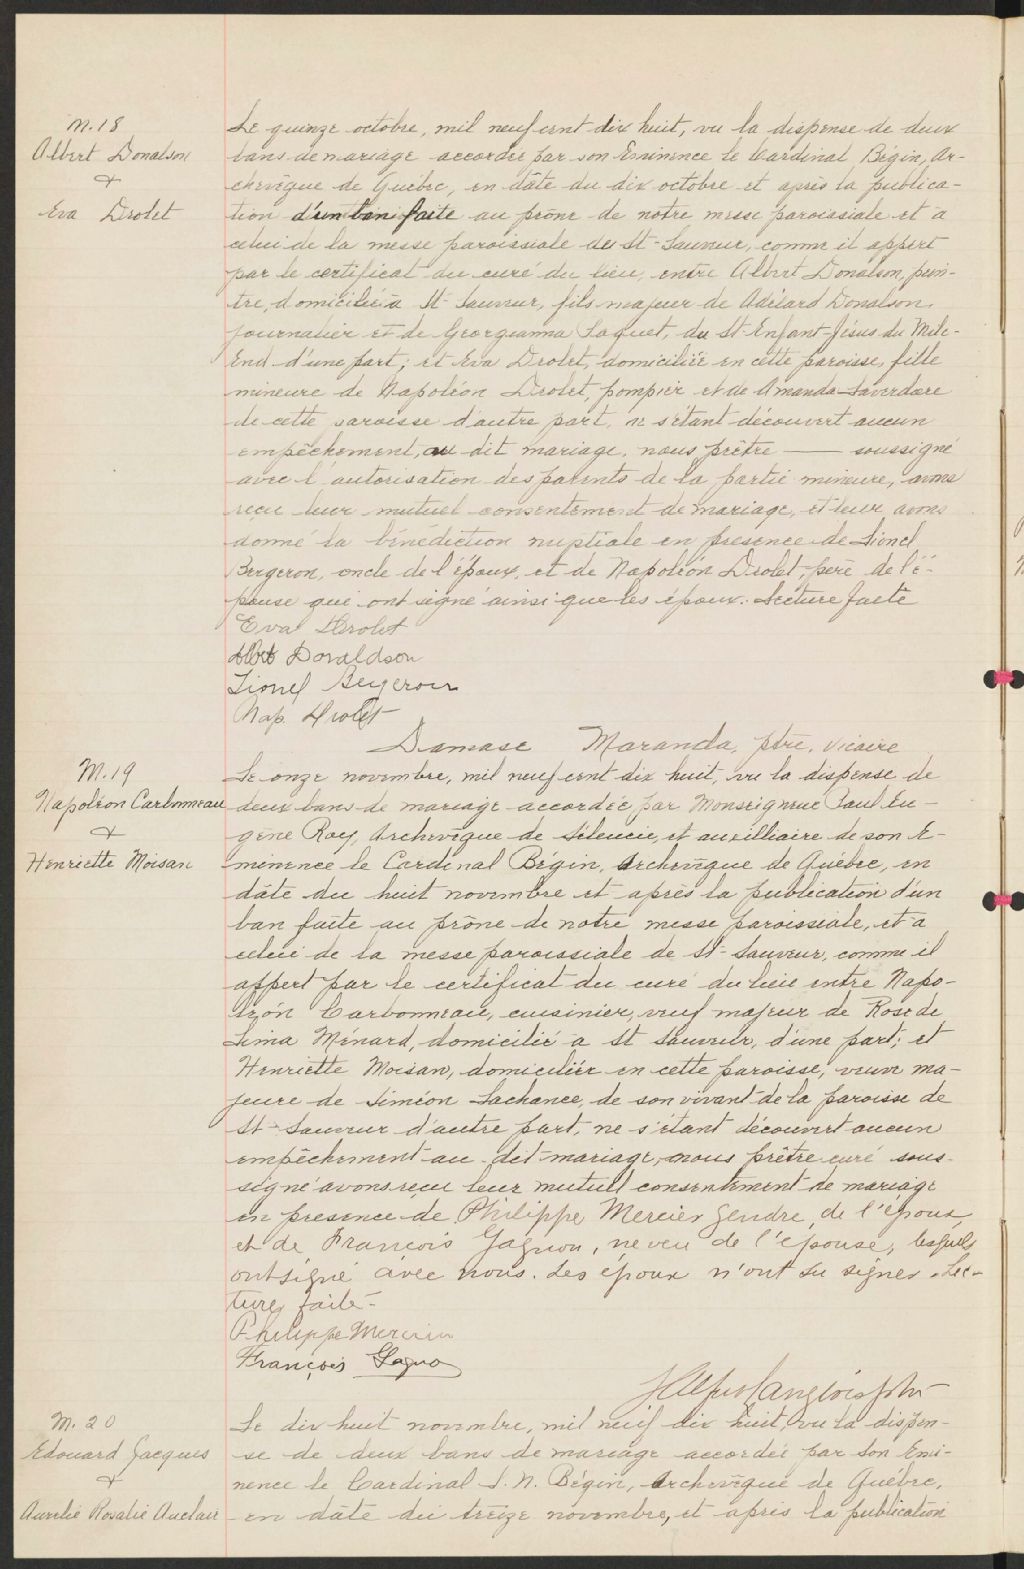 M. 18
Albert Donalson
&
Eva Drolet
Le quinze octobre, mil neuf cent dix huit, vu la dispense de deux
bans de mariage accordée par son Eminence le Cardinal Bégin, Ar-
chevêque de Québec, en dâte du dix octobre et après la publica-
tion d'un ban faite au prône de notre messe paroissiale et à
celui de la messe paroissiale de St-Sauveur, comme il appert
par le certificat du curé du lieu, entre Albert Donalson, pein-
tre, domicilié à St-Sauveur, fils majeur de Adélard Donalson
journalier et de Georgianna Paquet, du St-Enfant-Jésus du Mile-
End d'une part; et Eva Drolet, domiciliée en cette paroisse, fille
mineure de Napoléon Drolet, pompier et de Amanda
de cette paroisse d'autre part, ne s'étant découvert aucun
empêchement, au dit mariage, nous prêtre — soussigné
avec l'autorisation des parents de la partie mineure, avons
reçu leur mutuel consentement de mariage, et leur avons
donné la bénédiction nuptiale en presence de Lionel
Bergeron, oncle de l'époux, et de Napoléon Drolet, père de l'é-
pouse qui ont signé ainsi que les époux. Lecture faite
Eva Drolet
Albt Donaldson
Lionel Bergeron
Nap. Drolet
Damase Maranda, ptre, vicaire
M. 19
Napoléon Carbonneau
&
Henriette Moisan
Le onze novembre, mil neuf cent dix huit, vu la dispense de
deux bans de mariage accordée par Monseigneur Paul Eu-
gène Roy, Archevêque de Séleucie, et auxilliaire de son E-
minence le Cardinal Bégin, Archevêque de Québec, en
dâte du huit novembre et après la publication d'un
ban faite au prône de notre messe paroissiale, et à
celui de la messe paroissiale de St-Sauveur, comme il
appert par le certificat du curé du lieu entre Napo-
léon Carbonneau, cuisinier, veuf majeur de Rose de
Lima Ménard, domicilié à St Sauveur, d'une part; et
Henriette Moisan, domiciliée en cette paroisse, veuve ma-
jeure de Siméon Lachance, de son vivant de la paroisse de
St-Sauveur d'autre part, ne s'étant découvert aucun
empêchement au dit mariage, nous prêtre curé sous-
signé avons reçu leur mutuel consentement de mariage
en presence de Philippe Mercier gendre, de l'époux,
et de François Gagnon, neveu de l'épouse, lesquels
ont signé avec nous. Les époux n'ont su signer. Lec-
ture faite.
Philippe Mercier
François Gagno
Langlois ptre
M. 20
Edouard Jacques
&
Aurelie Rosalie Auclair
Le dix huit novembre, mil neuf dix huit, vu la dispen-
se de deux bans de mariage accordée par son Emi-
nence le Cardinal L. N. Bégin, Archevêque de Québec,
en dâte du treize novembre, et après la publication